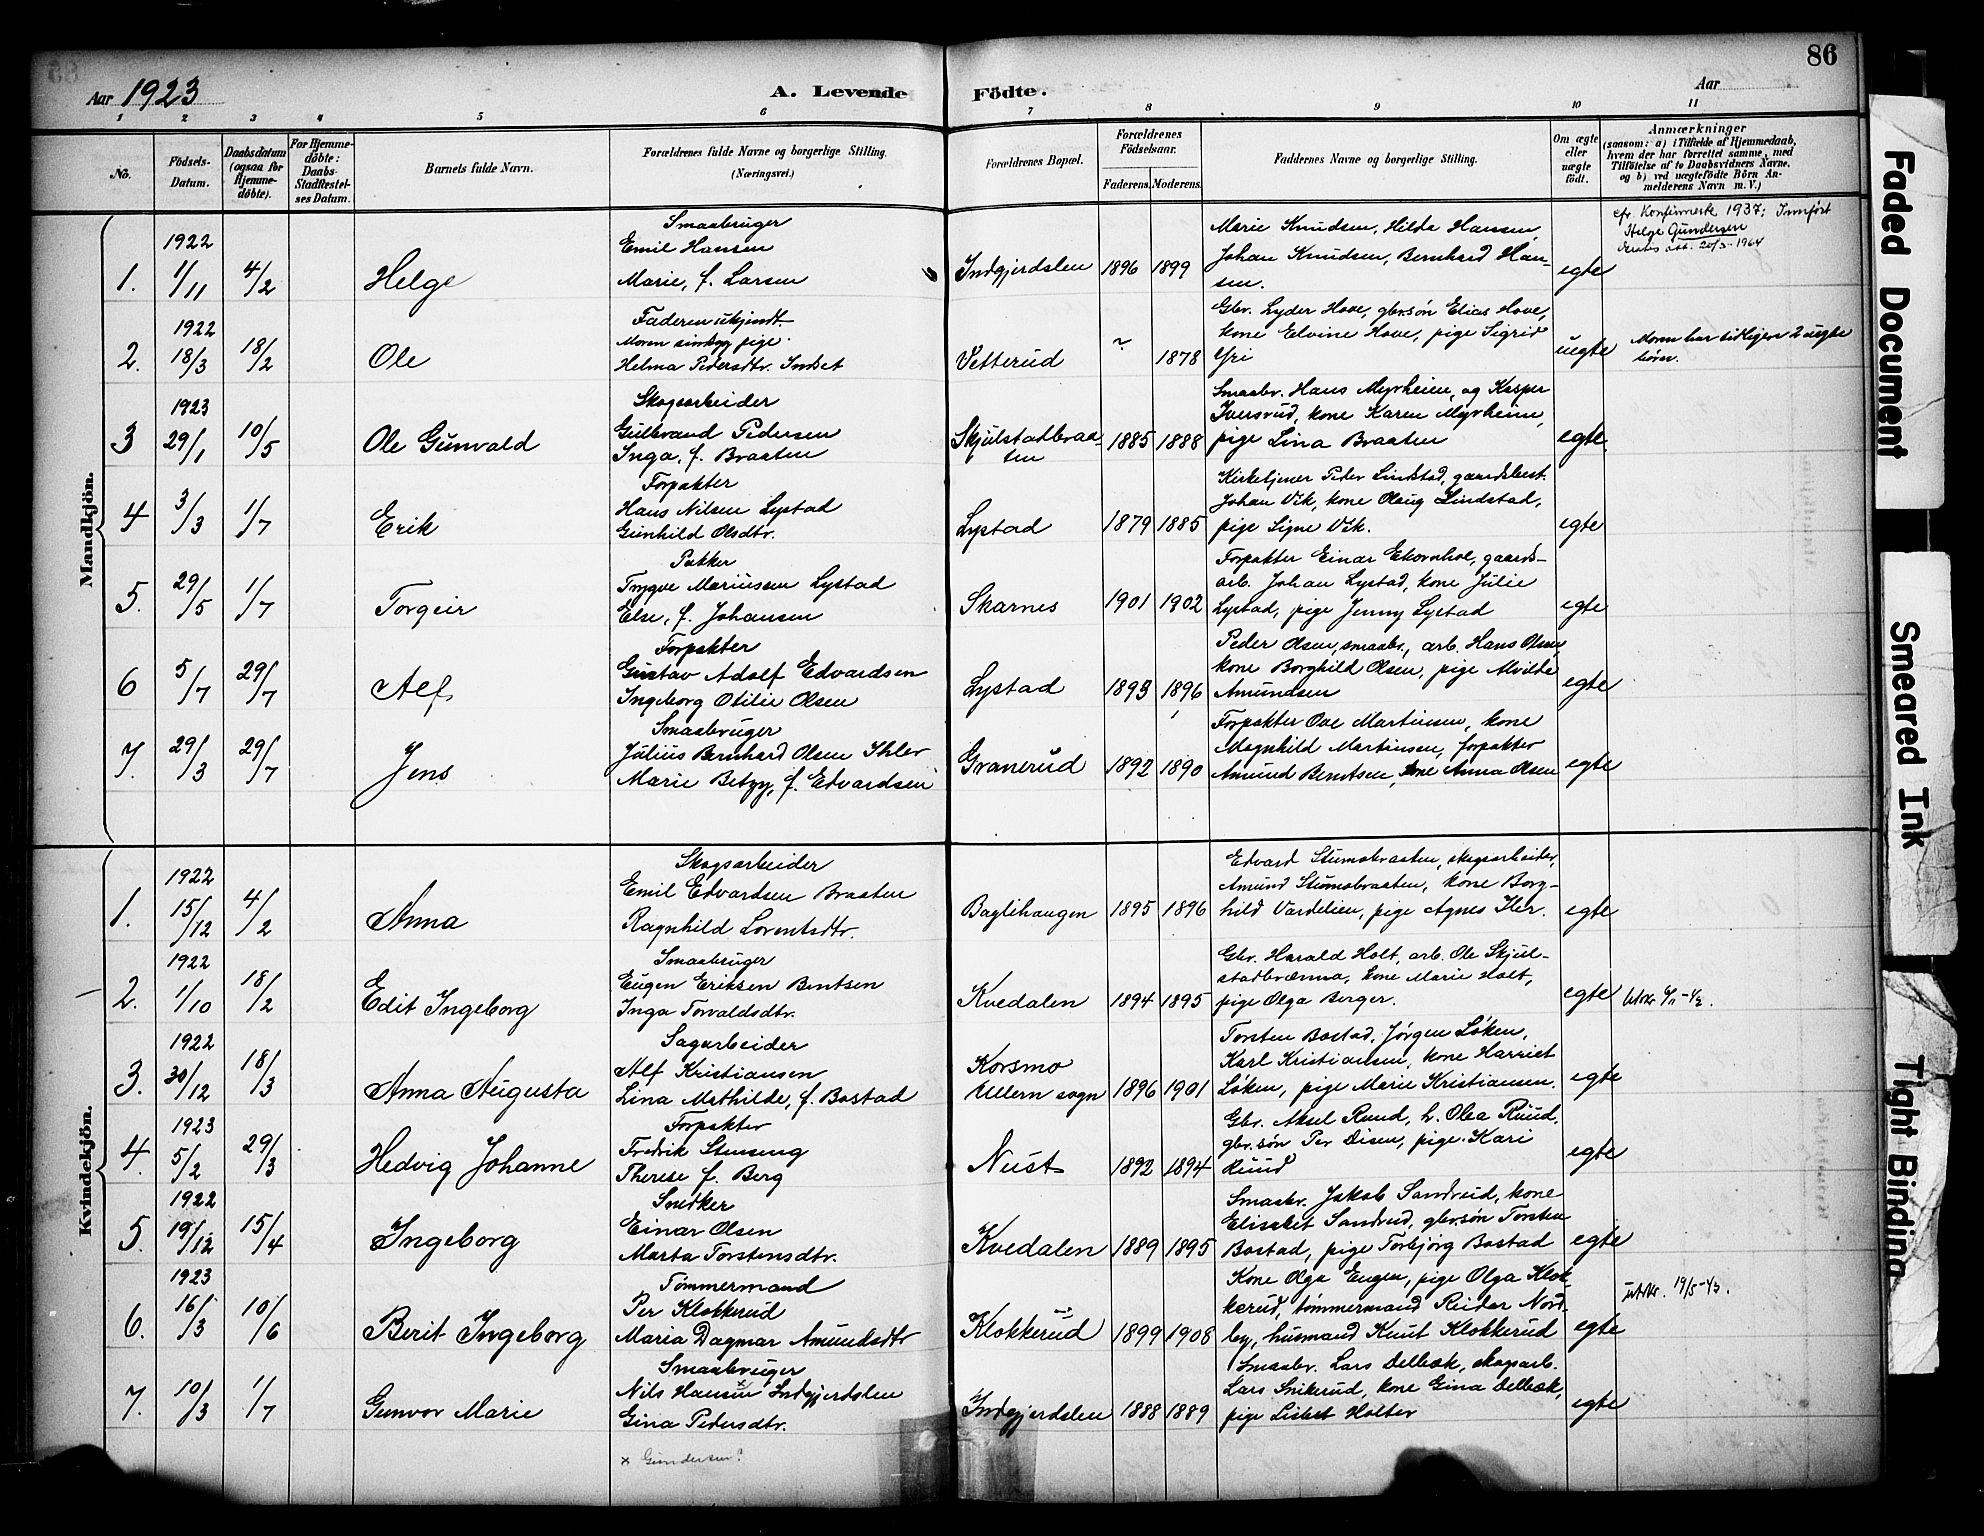 86
Aar 1923
A. Levende Födte.
Aar
1 2 3 4 5 6 7 8 9 10 11
No.
Födsels-Datum.
Daabsdatum (ogsaa for Hjemme-döbte).
For Hjemme-döbte: Daabs-Stadfæstel-ses Datum.
Barnets fulde Navn.
Forældrenes fulde Navne og borgerlige Stilling. (Næringsvei.)
Forældrenes Bopæl.
Forældrenes Födselsaar.
Faderens. Moderens.
Faddernes Navne og borgerlige Stilling.
Om ægte eller uægte födt.
Anmærkninger
(saasom: a) i Tilfælde af Hjemmedaab,
hvem der har forrettet samme, med
Tilföielse af to Daabsvidners Navne,
og b) ved uægtefödte Börn An-
melderens Navn m. V.)
Mandkjön.
1922
1. 1/11 4/2 Helge
Smaabruger
Emil Hansen
Marie, f. Larsen
Indgjerdslen 1896 1899
Marie Knudsen, Hilda Hansen,
Johan Knudsen, Bernhard Han-
sen.
egte
cfr. Konfirmerte 1937; Innfört
Helge Gundersen
20/3-1964
1922
2. 18/3 18/2 Ole
Faderen ukjendt.
Moren sindssyg pige.
Helma Pedersdtr. Indset
Vetterud ~ 1878
Gbr. Lyder Hove, gbrsøn Elias Hove,
kone Elvine Hove, pige Sigrid
Yri
uegte
Moren har tidligere 2 uegte
børn.
1923
3 29/1 10/5 Ole Gunvald
Skogsarbeider
Gulbrand Pedersen
Inga, f. Braaten
Skjulstadbraa-
ten
1885 1888
Smaabr. Hans Myrheim, og Kasper
Iversrud, kone Karen Myrheim,
pige Lina Braaten
egte.
4 3/3 1/7 Erik
Forpakter
Hans Nilsen Lystad
Gunhild Olsdtr.
Lystad 1879 1885
Kirketjener Peder Lindstad, gaardsbest.
Johan Vik, kone Olaug Lindstad,
pige Signe Vik.
egte
5. 29/5 1/7 Torgeir
Pakker
Trygve Mariusen Lystad
Else, f. Johansen
Skarnes 1901 1902
Forpakter Einar Ekornhol, gaards-
arb. Johan Lystad, kone Julie
Lystad, pige Jenny Lystad
egte
6 5/7 29/7 Alf
Forpakter
Gustav Adolf Edvardsen
Ingeborg Otilie Olsen
Lystad 1893 1896
Peder Olsen, smaabr., arb. Hans Olsen
kone Borghild Olsen, pige Alvilde
Amundsen
egte
7. 29/3 29/7 Jens
Smaabruger
Julius Bernhard Olsen Ihler
Marie Betzy, f. Edvardsen
Granerud 1892 1890
Forpakter Ove Martinsen, kone
Magnhild Martinsen, forpakter
Amund Berntsen, kone Anna Olsen
egte
Kvindekjön.
1922
1. 15/12 4/2 Anna
Skogsarbeider
Emil Edvardsen Braaten
Ragnhild Lorentsdtr.
Baglihaugen 1895 1896
Edvard Stumobraaten, skogsarbeider,
Amund Stumobraaten, kone Borg-
hild Vardelien, pige Agnes Iler.
egte
1922
2. 1/10 18/2 Edit Ingeborg
Smaabruger
Eugen Eriksen Berntsen
Inga Torvaldsdtr.
Kvedalen 1894 1895
Gbr. Harald Holt, arb. Ole Skjul-
stadbrænna, kone Marie Holt,
pige Olga Berger.
egte
1922
3. 30/12 18/3 Anna Augusta
Sagarbeider
Alf Kristiansen
Lina Mathilde, f. Bostad
Korsmo
Ullern sogn
1896 1901
Torsten Bostad, Jørgen Løken,
Karl Kristiansen, kone Harriet
Løken, pige Marie Kristiansen.
egte
1923
4. 5/2 29/3 Hedvig Johanne
Forpakter
Fredrik Stenseng
Therese f. Berg
Nust 1892 1894
Gbr. Aksel Ruud, h. Olea Ruud,
gbr.søn Per Disen, pige Kari
Ruud
egte
1922
5. 19/12 15/4 Ingeborg
Snedker
Einar Olsen
Marta Torstensdtr.
Kvedalen 1889 1895
Smaabr. Jakob Sandrud, kone
Elisabet Sandrud, gbrsøn Torsten
Bostad, pige Torbjørg Bostad
egte
1923
6. 16/3 10/6 Berit Ingeborg
Tømmermand
Per Klokkerud
Maria Dagmar Amundsdtr
Klokkerud 1899 1908
Kone Olga Eugen, pige Olga Klok-
kerud, tømmermand Reidar Nord-
by, husmand Knut Klokkerud
egte
utskr. 19/5-43.
7. 10/3 1/7 Gunvor Marie
Smaabruger
Nils Hansen x Indgjerdslen
Gina Pedersdtr.
Indgjerdslen 1888 1889
Smaabr. Lars Delbæk, skogsarb.
Lars Snikerud, kone Gina Delbæk,
pige Lisbet Holter
egte
x Gundersen?
Faded Document
Smeared Ink
Tight Binding